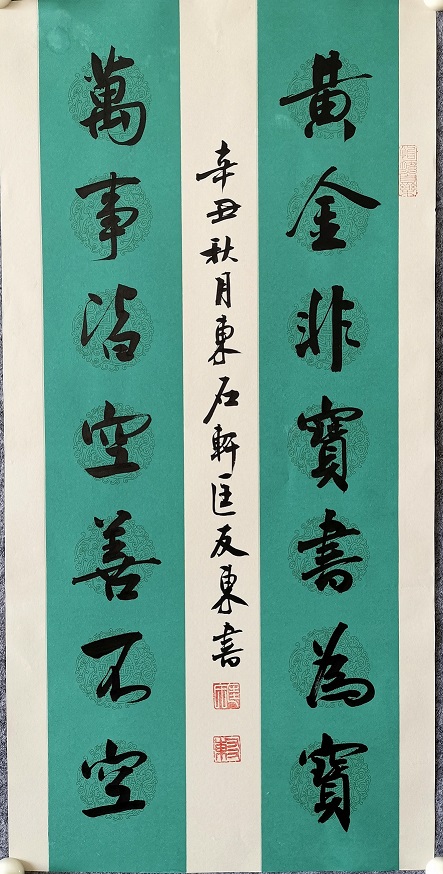 黃金非寶書為寶
萬事皆空善不空
辛丑秋月東石軒匡反東書